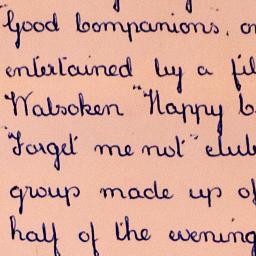 Good Companions. on
entertained by a fil
Walsoken "Happy b
"Forget me not" club
group made up of
half of the evening